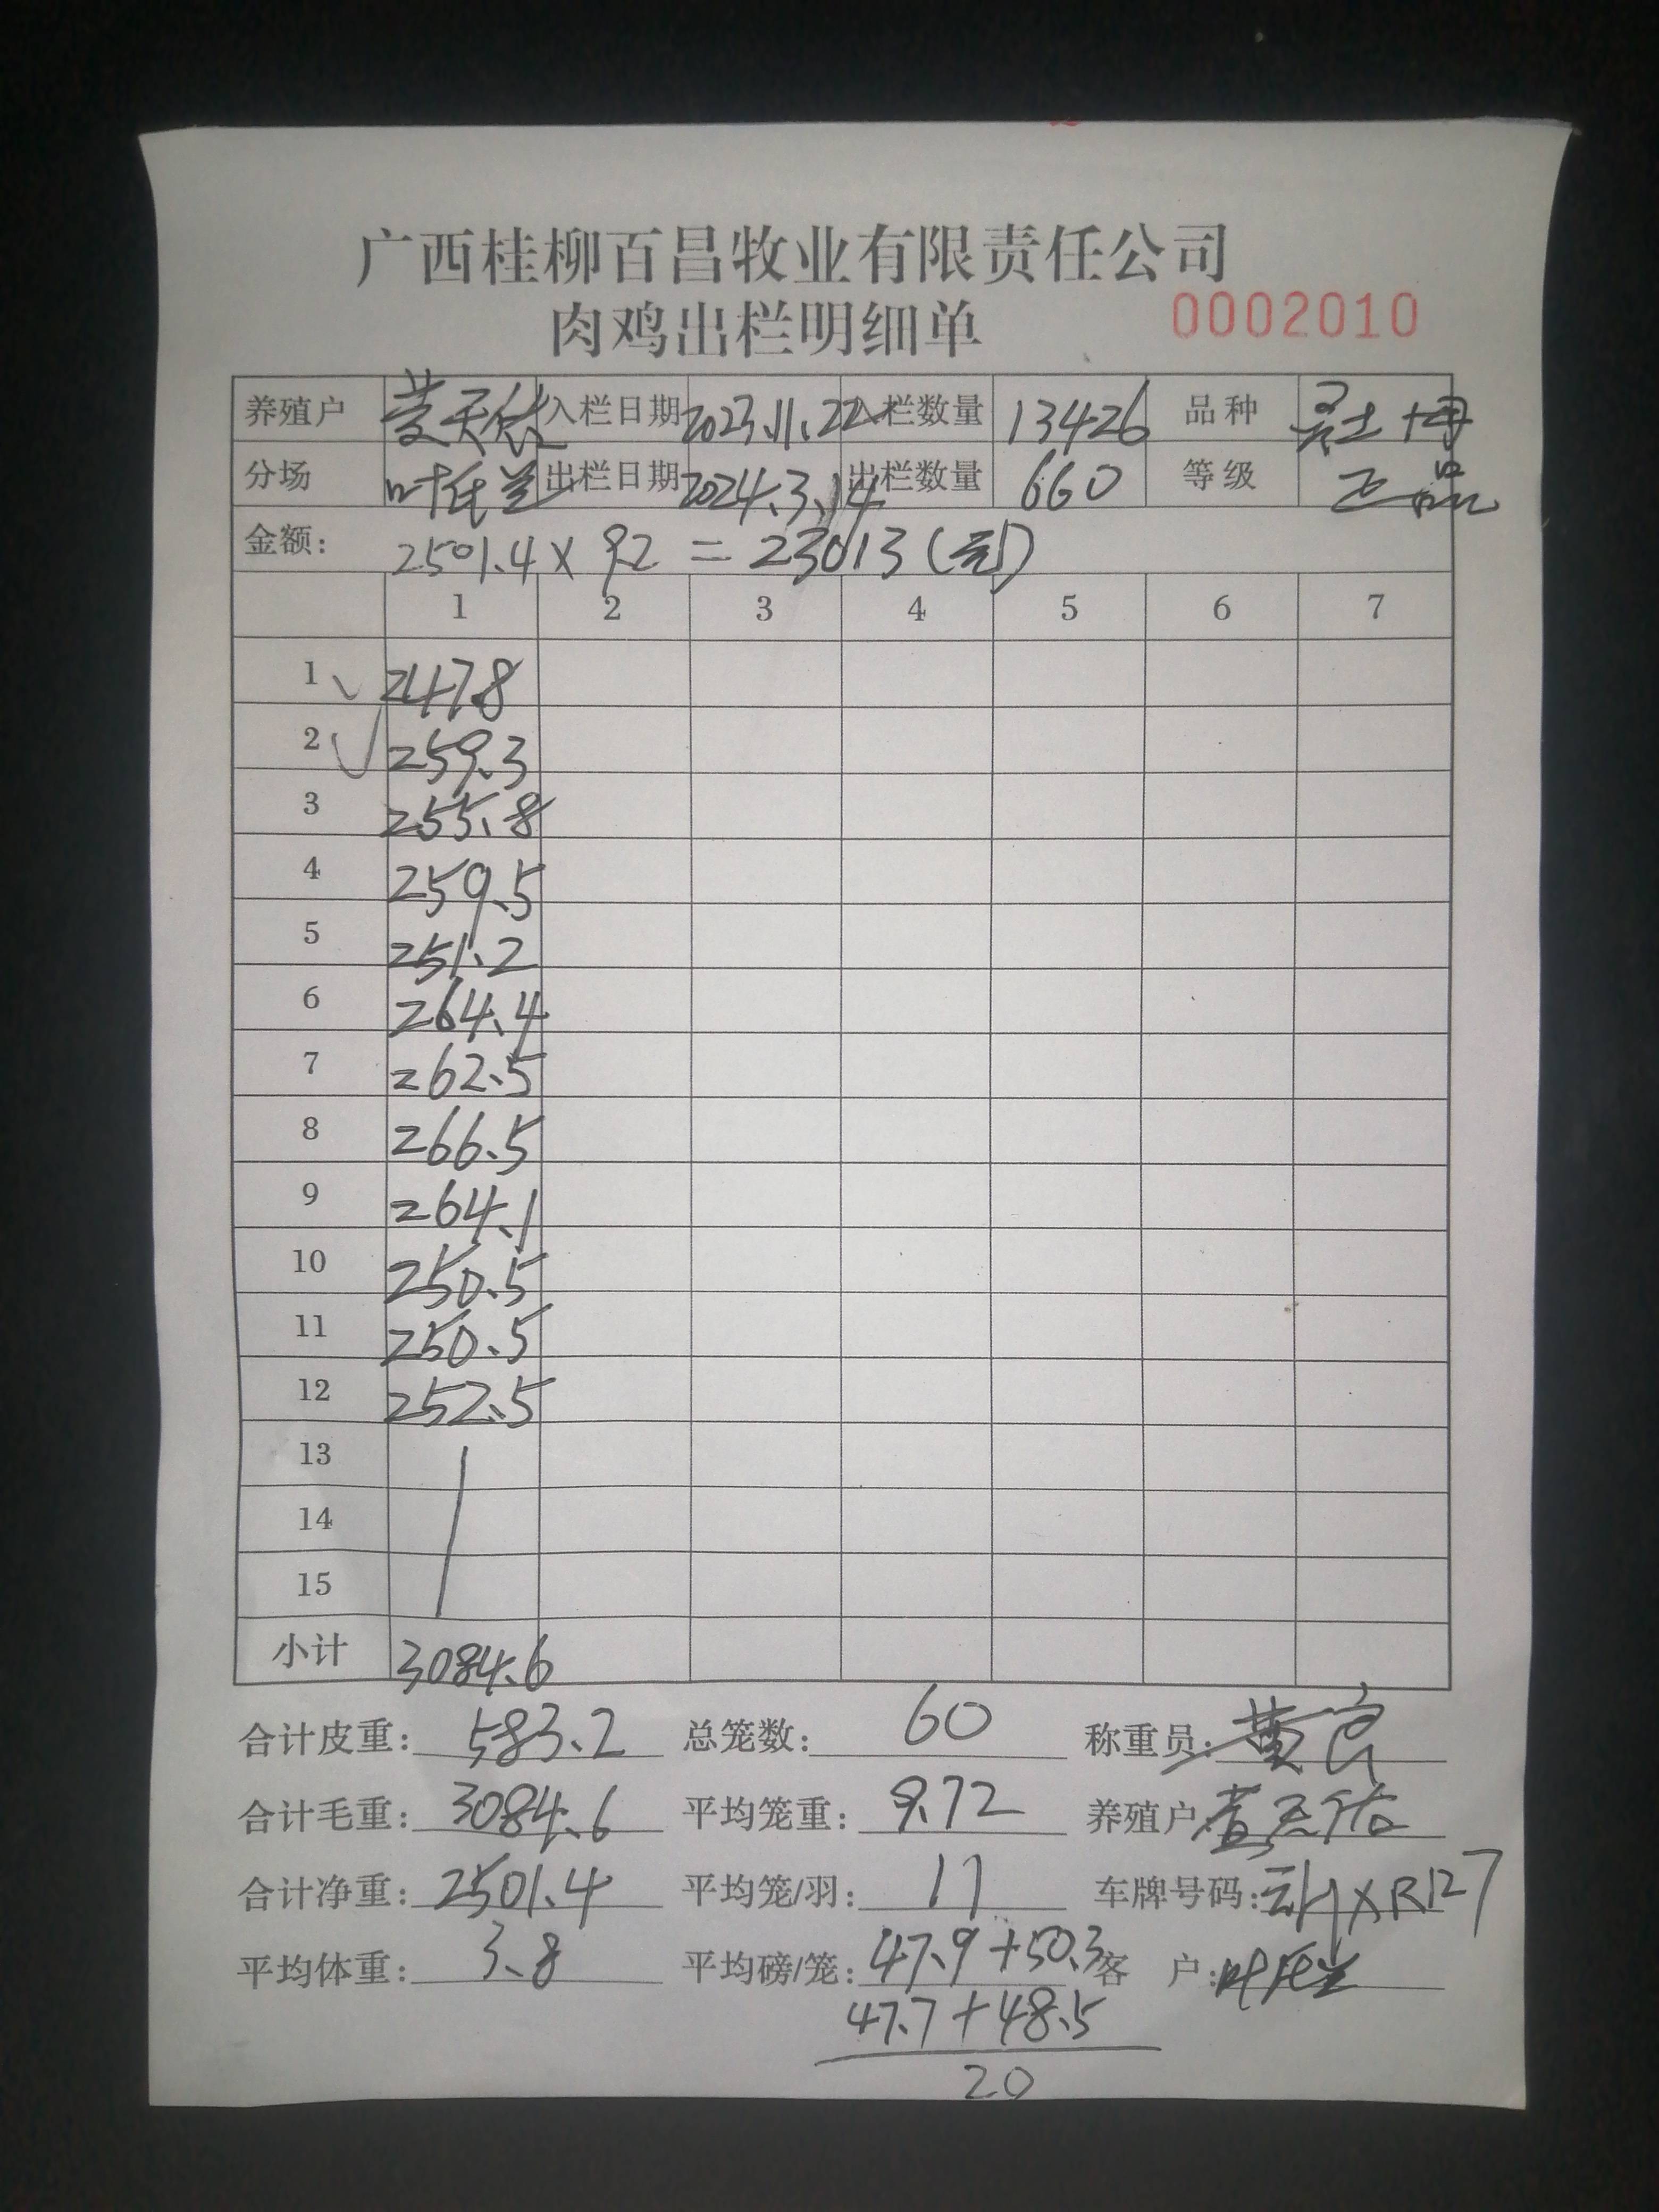 广西桂柳百昌牧业有限责任公司
肉鸡出栏明细单 0002010
养殖户 黄天佑 入栏日期 2023.11.22 入栏数量 13426 品种 土 母
分场 出栏日期 2024.3.14 出栏数量 660 等级 正品
金额: 2501.4 × 9.2 = 23013 (元)
1 2 3 4 5 6 7
1 247.8
2 259.3
3 255.8
4 259.5
5 251.2
6 264.4
7 262.5
8 266.5
9 264.1
10 250.5
11 250.5
12 252.5
13
14
15
小计 3084.6
合计皮重: 583.2 总笼数: 60 称重员:
合计毛重: 3084.6 平均笼重: 9.72 养殖户:
合计净重: 2501.4 平均笼/羽: 11 车牌号码:
平均体重: 3.8 平均磅/笼: 47.9+50.3 客 户:
47.7+48.5
20